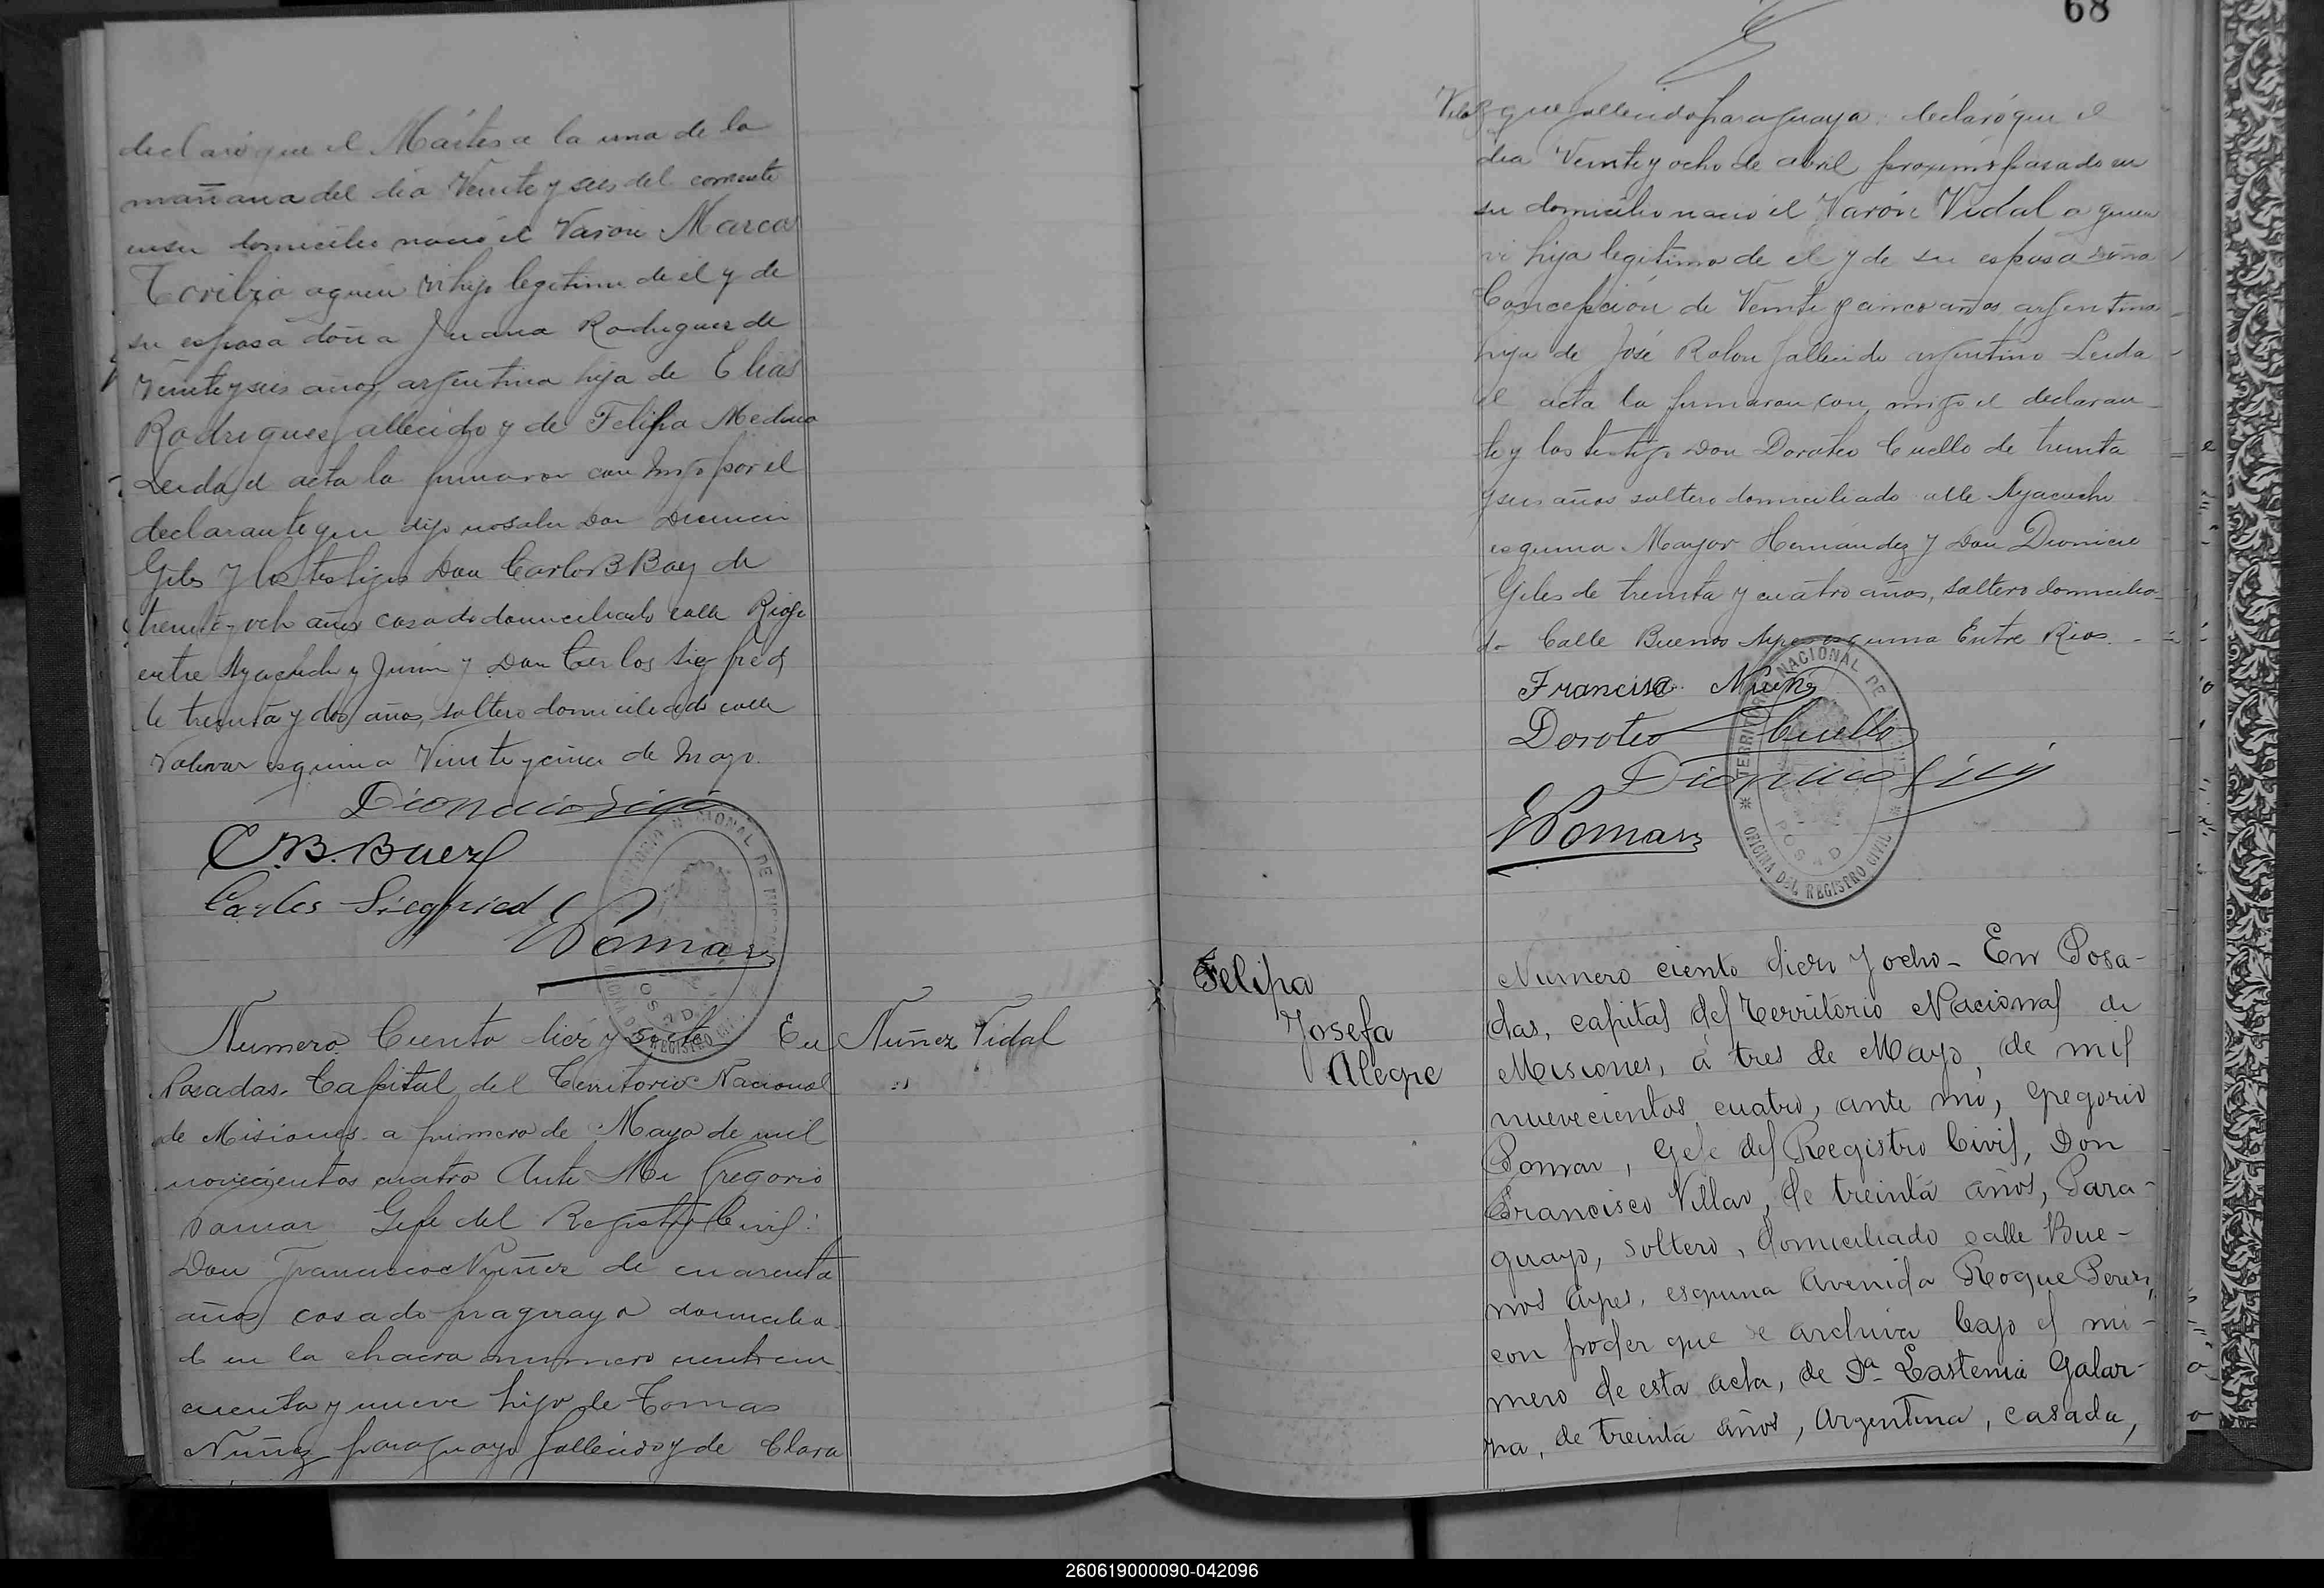 declaró que el Mártes a la una de la
mañana del dia Veinte y seis del corriente
en su domicilio nació el Varon Marcos
Toribio a quien vi hijo legitimo de él y de
su esposa doña Juana Rodriguez de
Veinte y seis años, argentina hija de Elias
Rodriguez fallecido y de Felipa Medina
Leida el acta la firmaron con migo por el
declarante que dijo no saber Don Dionicio
Giles y los testigos Don Carlos B Baez de
treinta y ocho años casado domiciliado calle Rioja
entre Ayacucho y Junin y Don Carlos Siegfried
de treinta y dos años, soltero domiciliado calle
Bolivar esquina Veinte y cinco de Mayo.
Dionicio Giles
C.B. Baez
Carlos Siegfried
GPomar
Numero Ciento diez y siete En
Posadas, Capital del Territorio Nacional
de Misiones a primero de Mayo de mil
novecientos cuatro Ante Mi Gregorio
Pomar Gefe del Registro Civil:
Don Francisco Nuñez de cuarenta
años casado praguayo domicilia
do en la chacra numero ciento cin
cuenta y nueve hijo de Tomas
Nuñez paraguayo fallecido y de Clara
Nuñez Vidal
68
que fallecido paraguaya: declaró que el
dia Veinte y ocho de abril proximo pasado en
su domicilio nació el Varón Vidal a quien
vi hijo legitimo de el y de su esposa doña
Concepción de Veinte y cinco años argentina
hija de José Rolon fallecido argentino Leida
el acta la firmaron con migo el declaran
te y los testigo Don Doroteo Cuello de treinta
y seis años soltero domiciliado calle Ayacucho
esquina Mayor Hernández y Don Dionicio
Giles de treinta y cuatro años, soltero domicilia-
do Calle Buenos Ayres esquina Entre Rios.
Francisco Nuñez
Doroteo Cuello
Dionicio Giles
GPomar
TERRITORIO NACIONAL DE
OFICINA DEL REGISTRO CIVIL
POSAD
Felipa
Josefa
Alegre
Numero ciento diez y ocho- En Posa-
das, capital del territorio Nacional de
Misiones, á tres de Mayo, de mil
nuevecientos cuatro, ante mi, Gregorio
Pomar, Gefe del Registro Civil, Don
Francisco Villar, de treinta años, Para-
guayo, soltero, domiciliado calle Bue-
nos Ayres, esquina Avenida Roque Perez,
con poder que se archiva bajo el nú-
mero de esta acta, de Dª Lastenia Galar-
za, de treinta años, Argentina, casada,
260619000090-042096